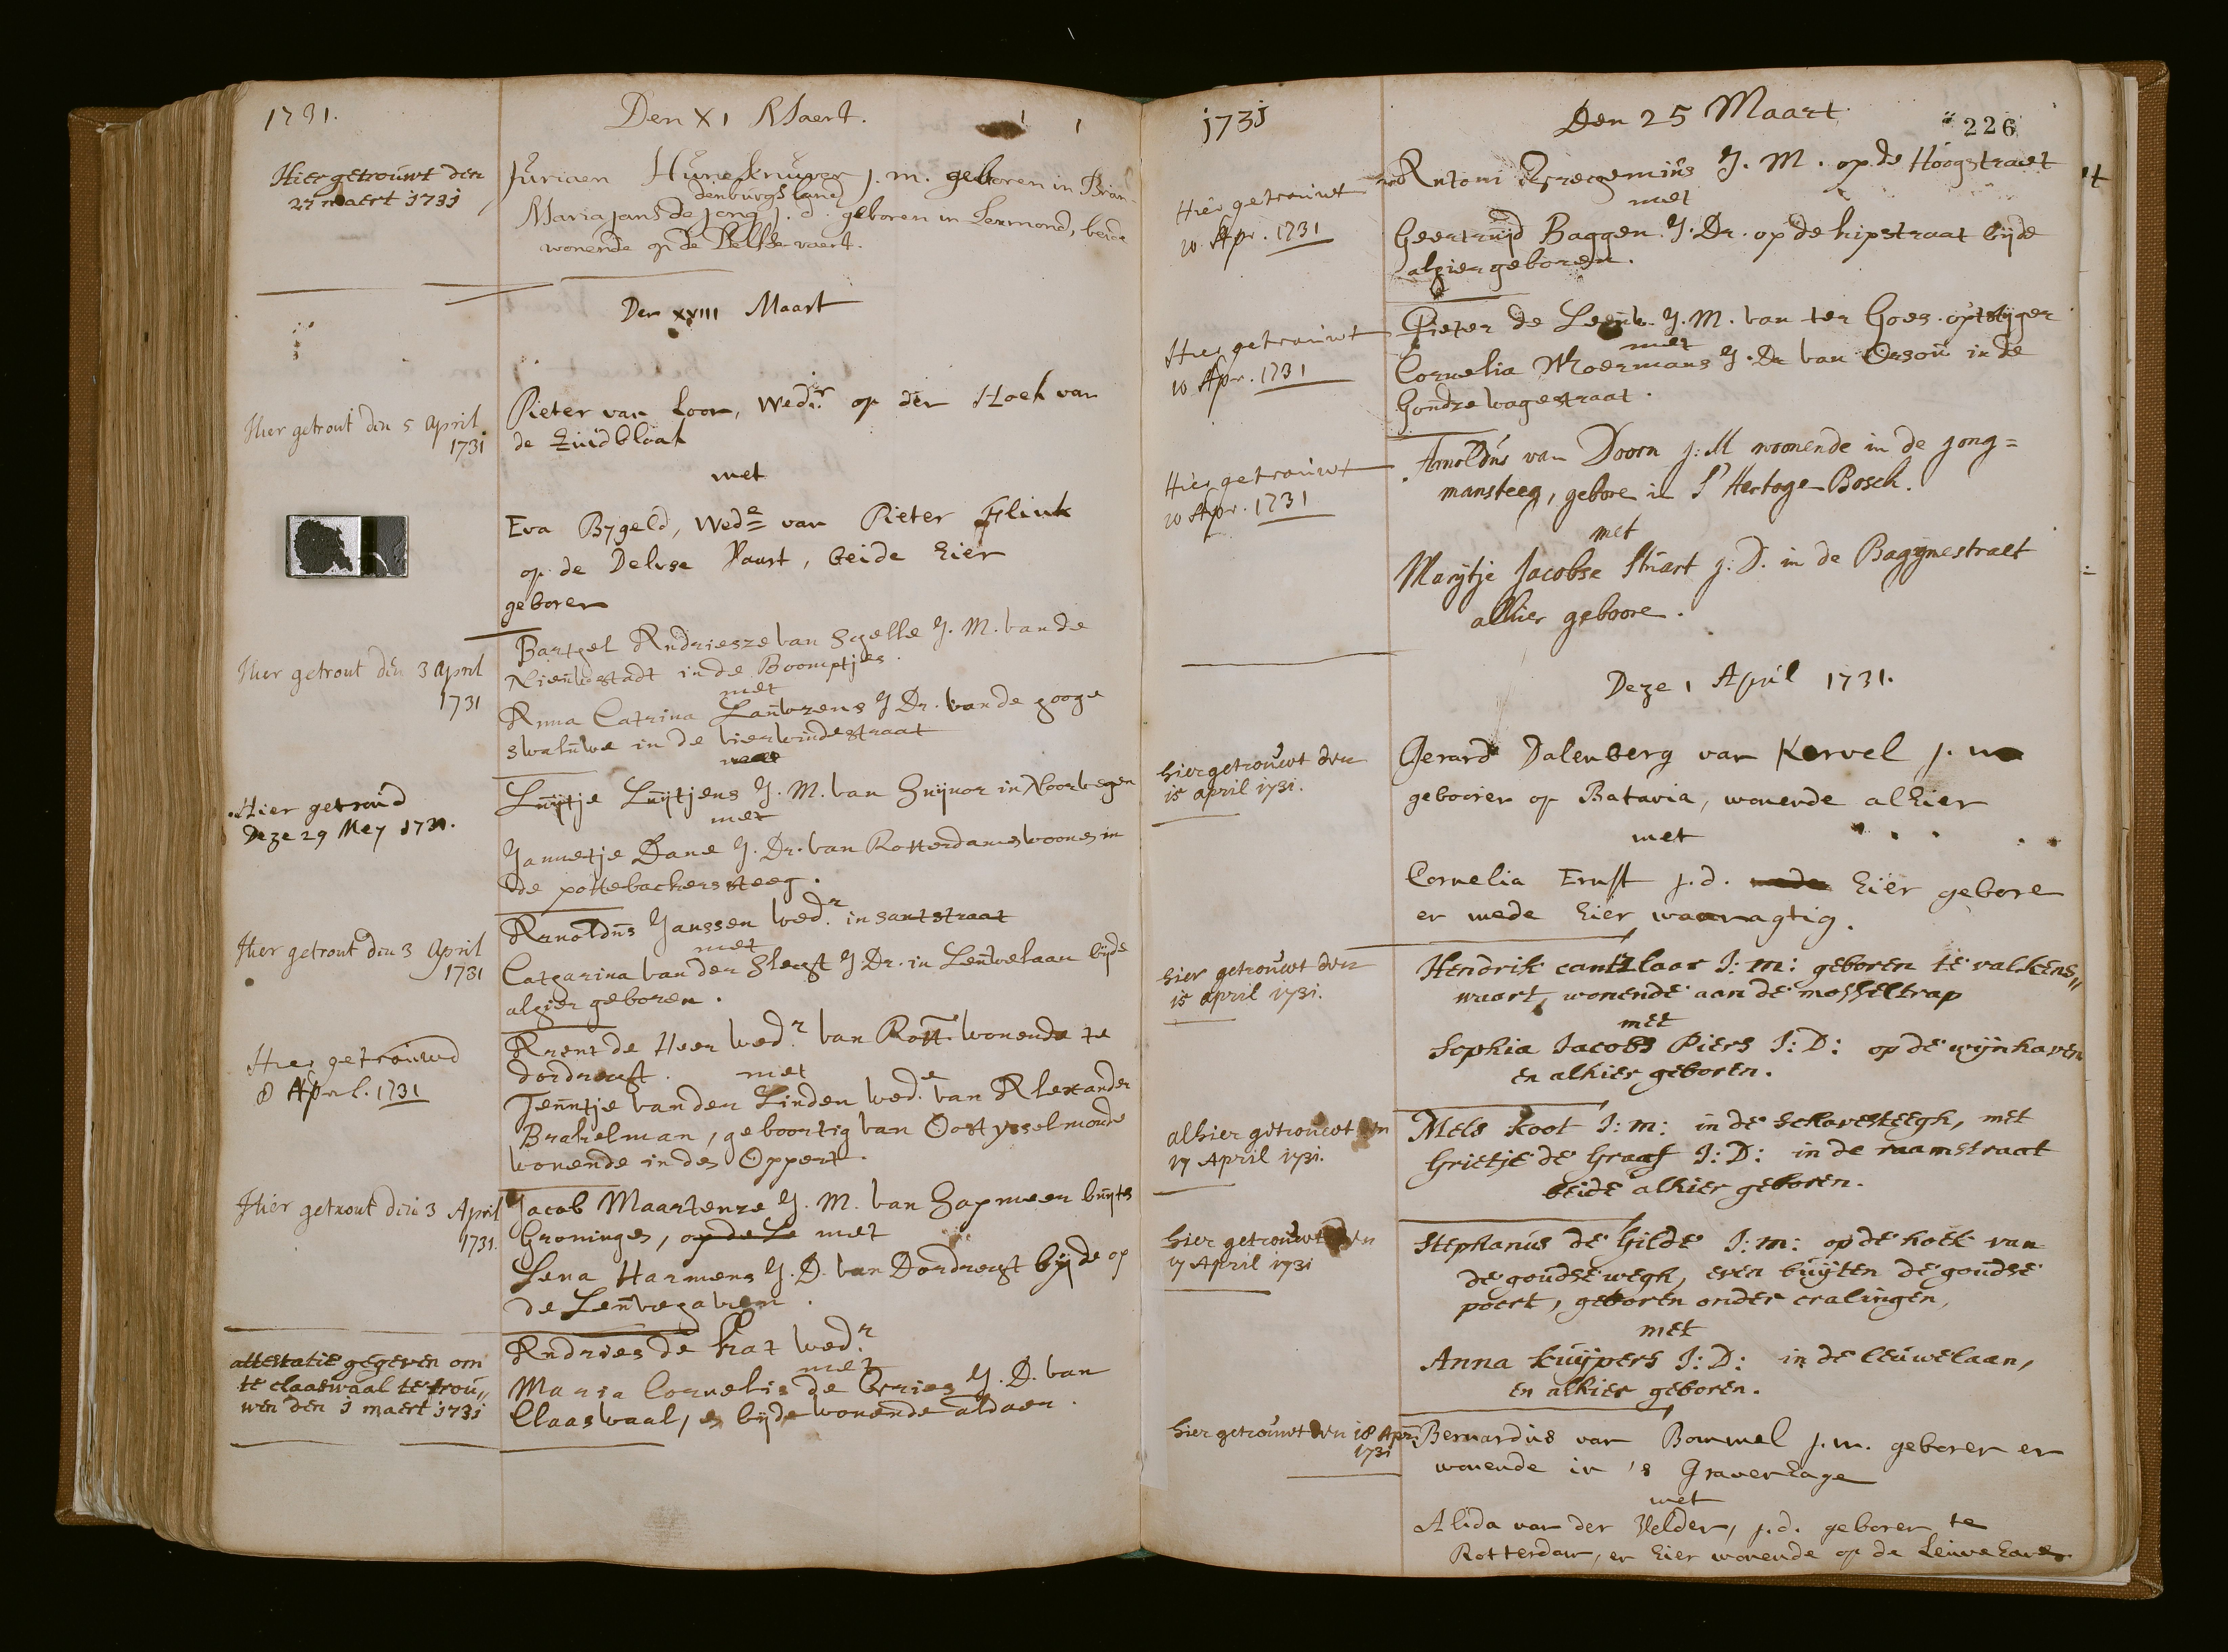 1731.
Den XI Maert.
Hier getrouwt den
27 maert 1731
Juriaen j. m. geboren in Bran-
denburgs land
Maria Jans de Jong j. d. geboren in Lexmond, beide
wonende op de Delfse vaert.
Den XVIII Maart
Hier getrout den 5 April
1731
Pieter van Loon, Wedr. op den Hoek van
de Zuidblaak
met
Eva Bygeld, Wede van Pieter Flink
op de Delvse Vaart, beide hier
geboren
Hier getrout den 3 April
1731
Bartel Andriesze van Hgelle J. M. van de
Nieuwestadt in de Boomptjes.
met
Anna Catrina Lauwrens J Dr. van de hooge
swaluwe in de vierwindestraat
Hier getroud
Deze 29 Mey 1731.
Luijtje Luijtjens J. M. van in Noorwegen
met
Jannetje Dane J. Dr. van Rotterdam woonen in
de pottebackerssteeg.
Hier getrout den 3 April
1731
Arnoldus Janssen wedr. in santstraat
met
Catharina van der Slegt J Dr. in Leuwelaan bijde
alhier geboren.
Hier getrouwd
8 April. 1731
Arent de Heer wedr. van Rott. wonende te
dordregt. met
Jenntje van der Linden wede. van Alexander
Brakelman, geboortig van Oost ysselmonde
wonende in den Oppert.
Hier getrout den 3 April
1731.
Jacob Maartenze J. M. van Sapmeer buyte
Groningen, op de Le met
Lena Harmens J. D. van Dordregt bijde op
de Leuvehaven.
attestatie gegeven om
te claaswaal te trou,,
wen den 1 maert 1731
Andries de Kat wedr.
met
Maria Cornelis de Vries J. D. van
Claaswaal, en bijde wonende aldaer.
1731
Den 25 Maart
226
Hier getrouwt
10 Apr. 1731
Antoni J. M. op de Hoogstraet
met
Geertruijd Baggen J. Dr. op de kipstraat bijde
alhier geboren.
Hier getrouwt
10 Apr. 1731
Pieter de Leeuw J. M. van ter Goes. op stijger
met
Cornelia Moermans J. Dr van Orsou in de
Goudze wagestraat.
Hier getrouwt
10 Apr. 1731
Arnoldus van Doorn j: M woonende in de jong=
mansteeg, gebore in S' Hertoge-Bosch.
met
Marijtje Jacobse Stuart j. D. in de Bagijnestraet
alhier geboore.
Deze 1 April 1731.
hier getrouwt den
15 april 1731.
Gerard Dalenberg van Kervel j. m
geboren op Batavia, wonende alhier
met
Cornelia Ernst j. d. mede hier gebore
en mede hier woonagtig.
hier getrouwt den
15 april 1731.
Hendrik cantzlaar J: m: geboren te valkens,,
waart, wonende aan de mosseltrap
met
Sophia Jacobs Piers J: D: op de wijnhaven
en alhier geboren.
alhier getrouwt den
17 April 1731.
Mels Koot J: m: in de schavesteegh, met
Grietje de Graaf J: D: in de raamstraat
beide alhier geboren.
hier getrouwt den
17 April 1731
Stephanus de Gilde J: m: op de hoek van
de goudse wegh, even buijten de goudse
poort, geboren onder cralingen,
met
Anna kuijpers J: D: in de leuwelaan,
en alhier geboren.
hier getrouwt den 18 Apr.
1731
Bernardus van Bommel j. m. geboren en
wonende in 's Gravenhage
met
Alida van der Velden, j. d. geboren te
Rotterdam, en hier wonende op de Leuvehaven